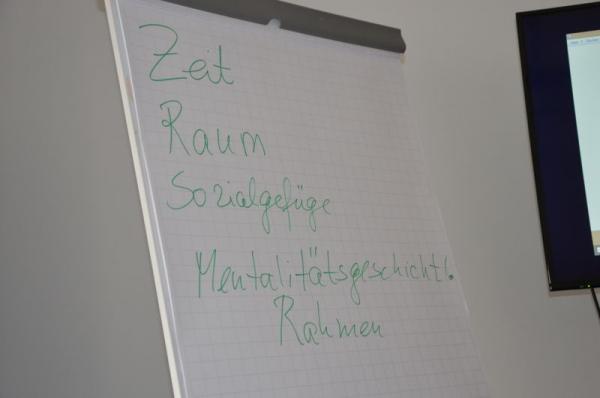 Zeit
Raum
Sozialgefüge
Mentalitätsgeschichtl.
Rahmen